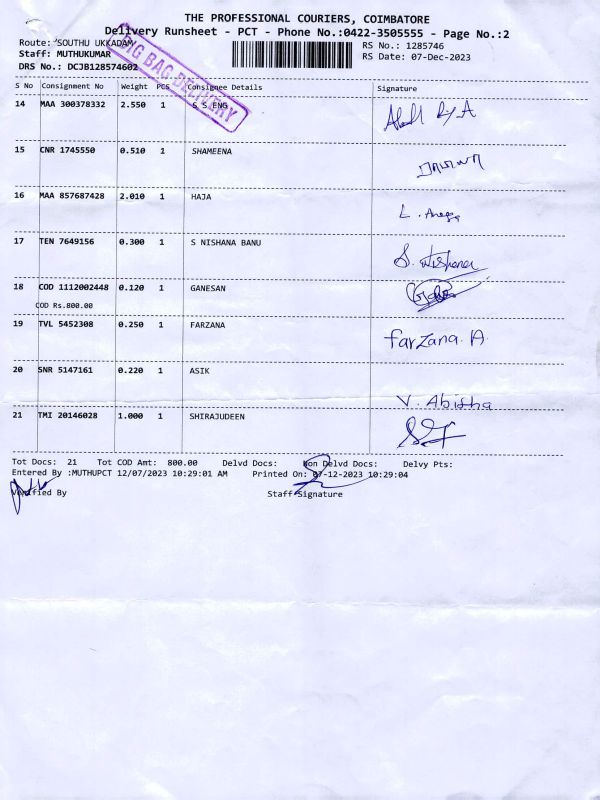 THE PROFESSIONAL COURIERS, COIMBATORE
Delivery Runsheet - PCT - Phone No.:0422-3505555 - Page No.:2
Route: SOUTHU UKKADAM
RS No.: 1285746
Staff: MUTHUKUMAR
RS Date: 07-Dec-2023
DRS No.: DCJB128574602
BIG BAG DELIVERY
S No Consignment No Weight PCS Consignee Details Signature
14 MAA 300378332 2.550 1 S S ENG
15 CNR 1745550 0.510 1 SHAMEENA
16 MAA 857687428 2.010 1 HAJA
17 TEN 7649156 0.300 1 S NISHANA BANU S. Nishana
18 COD 1112002448 0.120 1 GANESAN
COD Rs.800.00
19 TVL 5452308 0.250 1 FARZANA farzana. A.
20 SNR 5147161 0.220 1 ASIK V. Abisha
21 TMI 20146028 1.000 1 SHIRAJUDEEN
Tot Docs: 21 Tot COD Amt: 800.00 Delvd Docs: Non Delvd Docs: Delvy Pts:
Entered By :MUTHUPCT 12/07/2023 10:29:01 AM Printed On: 07-12-2023 10:29:04
Verified By Staff Signature